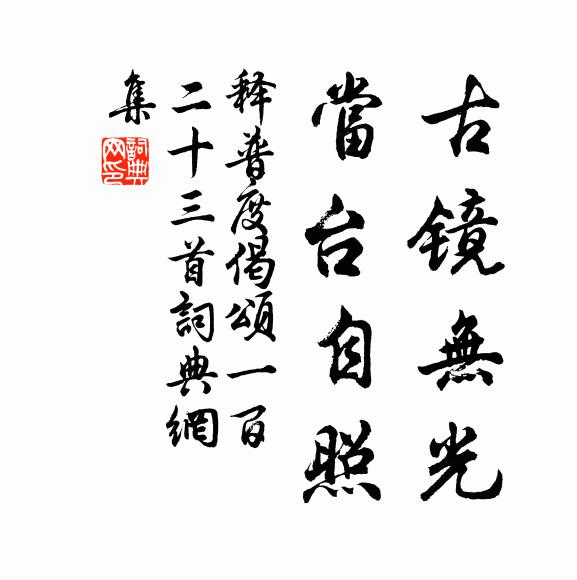 古镜無光
當台自照
释普度偈頌一百
二十三首詞典網
集
詞典
网印